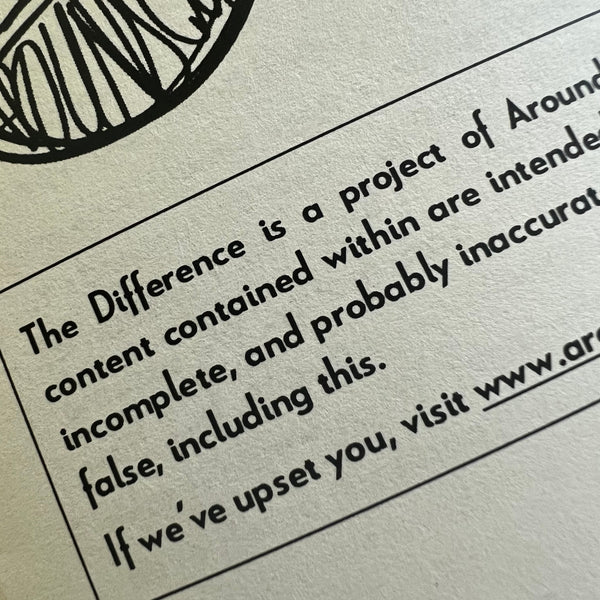 The Difference is a project of Around
content contained within are intended
incomplete, and probably
false, including this.
If we've upset you, visit